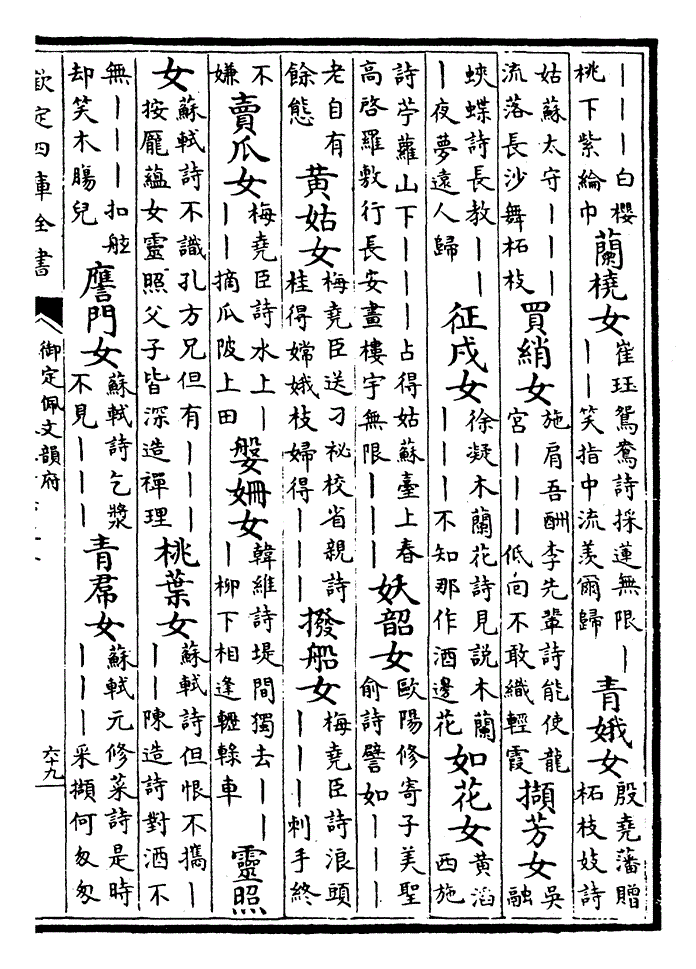 ｜｜｜白櫻桃下紫綸巾 蘭橈女 崔珏鴛鴦詩採蓮無限｜｜｜笑指中流羨爾歸 青娥女 殷堯藩贈柘枝妓詩
姑蘇太守｜｜｜流落長沙舞柘枝 買綃女 施肩吾酬李先輩詩能使龍宮｜｜｜低向不敢織輕霞 擷芳女 吳融
蛺蝶詩長教｜｜｜夜夢遠人歸 征戍女 徐凝木蘭花詩見說木蘭｜｜｜不知那作酒邊花 如花女 黃滔西施
詩苧蘿山下｜｜｜占得姑蘇臺上春高啓羅敷行長安畫樓宇無限｜｜｜ 妖韶女 歐陽修寄子美聖俞詩譬如｜｜｜
老自有餘態 黃姑女 梅堯臣送刁祕校省親詩桂得嫦娥枝婦得｜｜｜ 撥船女 梅堯臣詩浪頭｜｜｜刺手終
不嫌 賣瓜女 梅堯臣詩水上｜｜｜摘瓜陂上田 媻姍女 韓維詩堤間獨去｜｜｜柳下相逢轣轆車 靈照
女 蘇軾詩不識孔方兄但有｜｜｜按龐蘊女靈照父子皆深造禪理 桃葉女 蘇軾詩但恨不攜｜｜｜陳造詩對酒不
無｜｜｜扣舷却笑木腸兒 譍門女 蘇軾詩乞漿不見｜｜｜ 青帬女 蘇軾元修菜詩是時｜｜｜采擷何匆匆
欽定四庫全書
御定佩文韻府
六十九